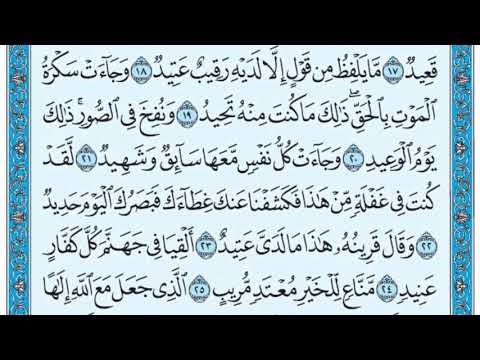 قَعِيدٌ ١٧ مَّا يَلْفِظُ مِن قَوْلٍ إِلَّا لَدَيْهِ رَقِيبٌ عَتِيدٌ ١٨ وَجَآءَتْ سَكْرَةُ
ٱلْمَوْتِ بِٱلْحَقِّۖ ذَٰلِكَ مَا كُنتَ مِنْهُ تَحِيدُ ١٩ وَنُفِخَ فِي ٱلصُّورِۚ ذَٰلِكَ
يَوْمُ ٱلْوَعِيدِ ٢٠ وَجَآءَتْ كُلُّ نَفْسٍ مَّعَهَا سَآئِقٌ وَشَهِيدٌ ٢١ لَّقَدْ
كُنتَ فِي غَفْلَةٍ مِّنْ هَٰذَا فَكَشَفْنَا عَنكَ غِطَآءَكَ فَبَصَرُكَ ٱلْيَوْمَ حَدِيدٌ
٢٢ وَقَالَ قَرِينُهُۥ هَٰذَا مَا لَدَيَّ عَتِيدٌ ٢٣ أَلْقِيَا فِي جَهَنَّمَ كُلَّ كَفَّارٍ
عَنِيدٍ ٢٤ مَّنَّاعٍ لِّلْخَيْرِ مُعْتَدٍ مُّرِيبٍ ٢٥ ٱلَّذِي جَعَلَ مَعَ ٱللَّهِ إِلَٰهًا